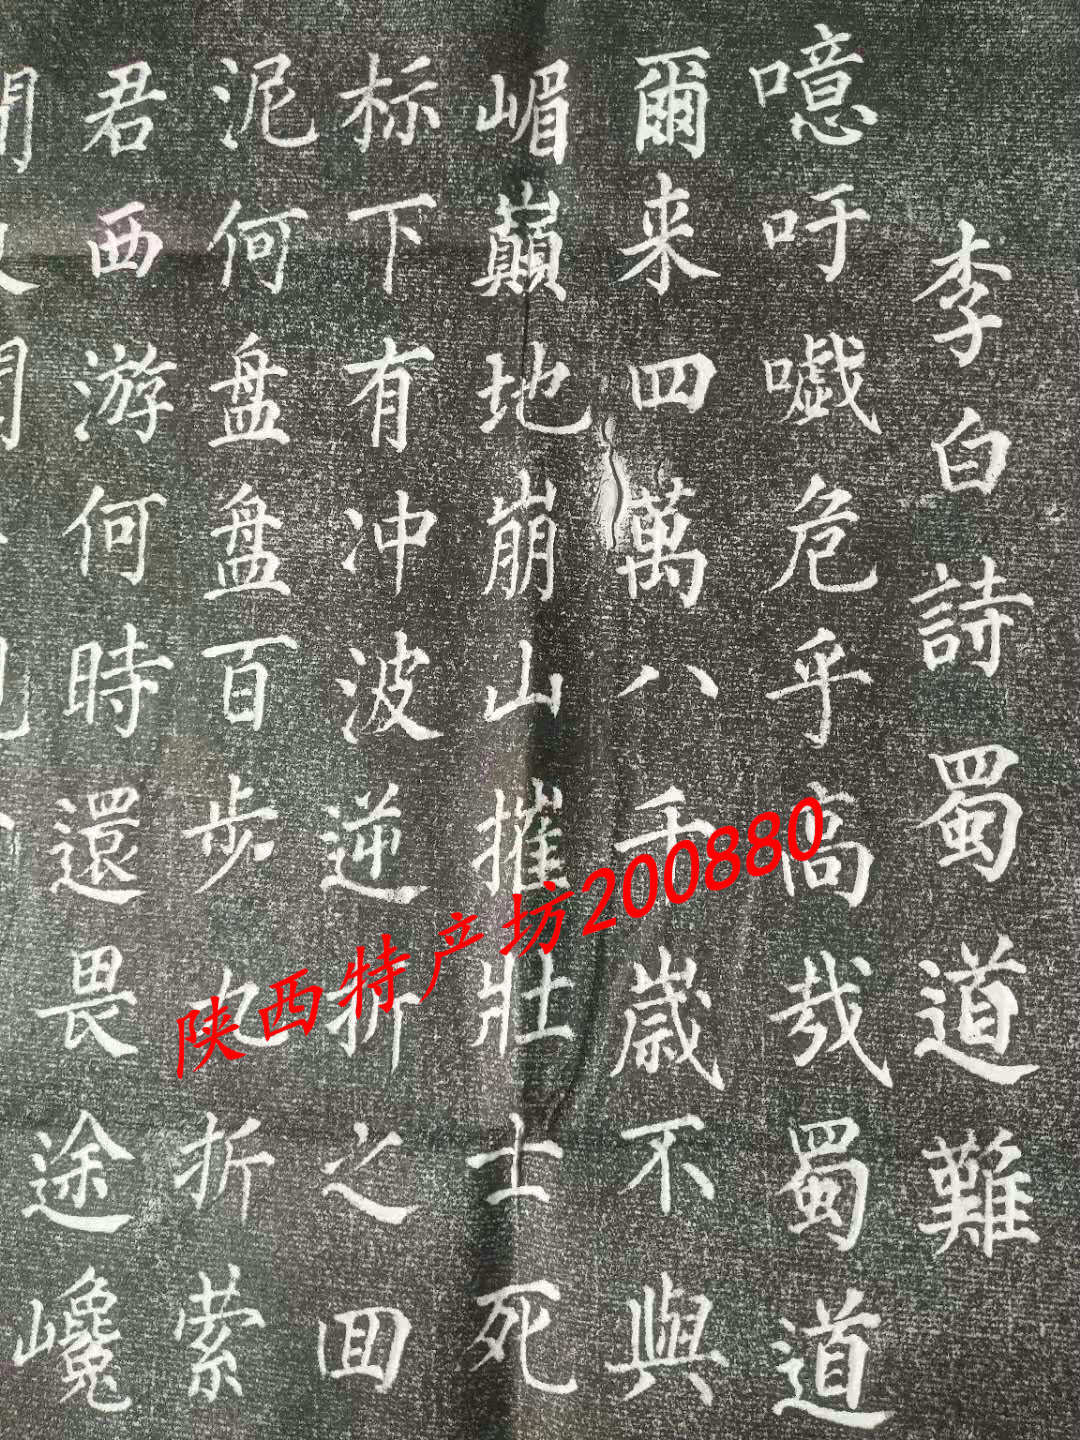 李白詩蜀道難
噫吁嚱危乎高哉蜀道
爾来四萬八千歲不與
嵋巔地崩山摧壯士死
标下有冲波逆折之回
泥何盘盘百步九折萦
君西游何時還畏途巉
陕西特产坊200880